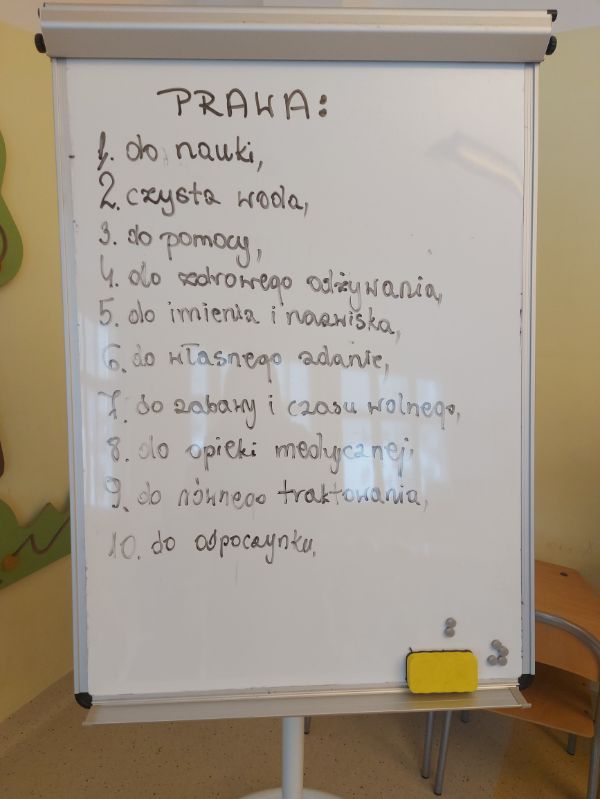 PRAWA:
1. do nauki,
2. czysta woda,
3. do pomocy,
4. do zdrowego odżywania,
5. do imienia i nazwiska,
6. do własnego zdanie,
7. do zabawy i czasu wolnego,
8. do opieki medycznej,
9. do równego traktowania,
10. do odpoczynku,